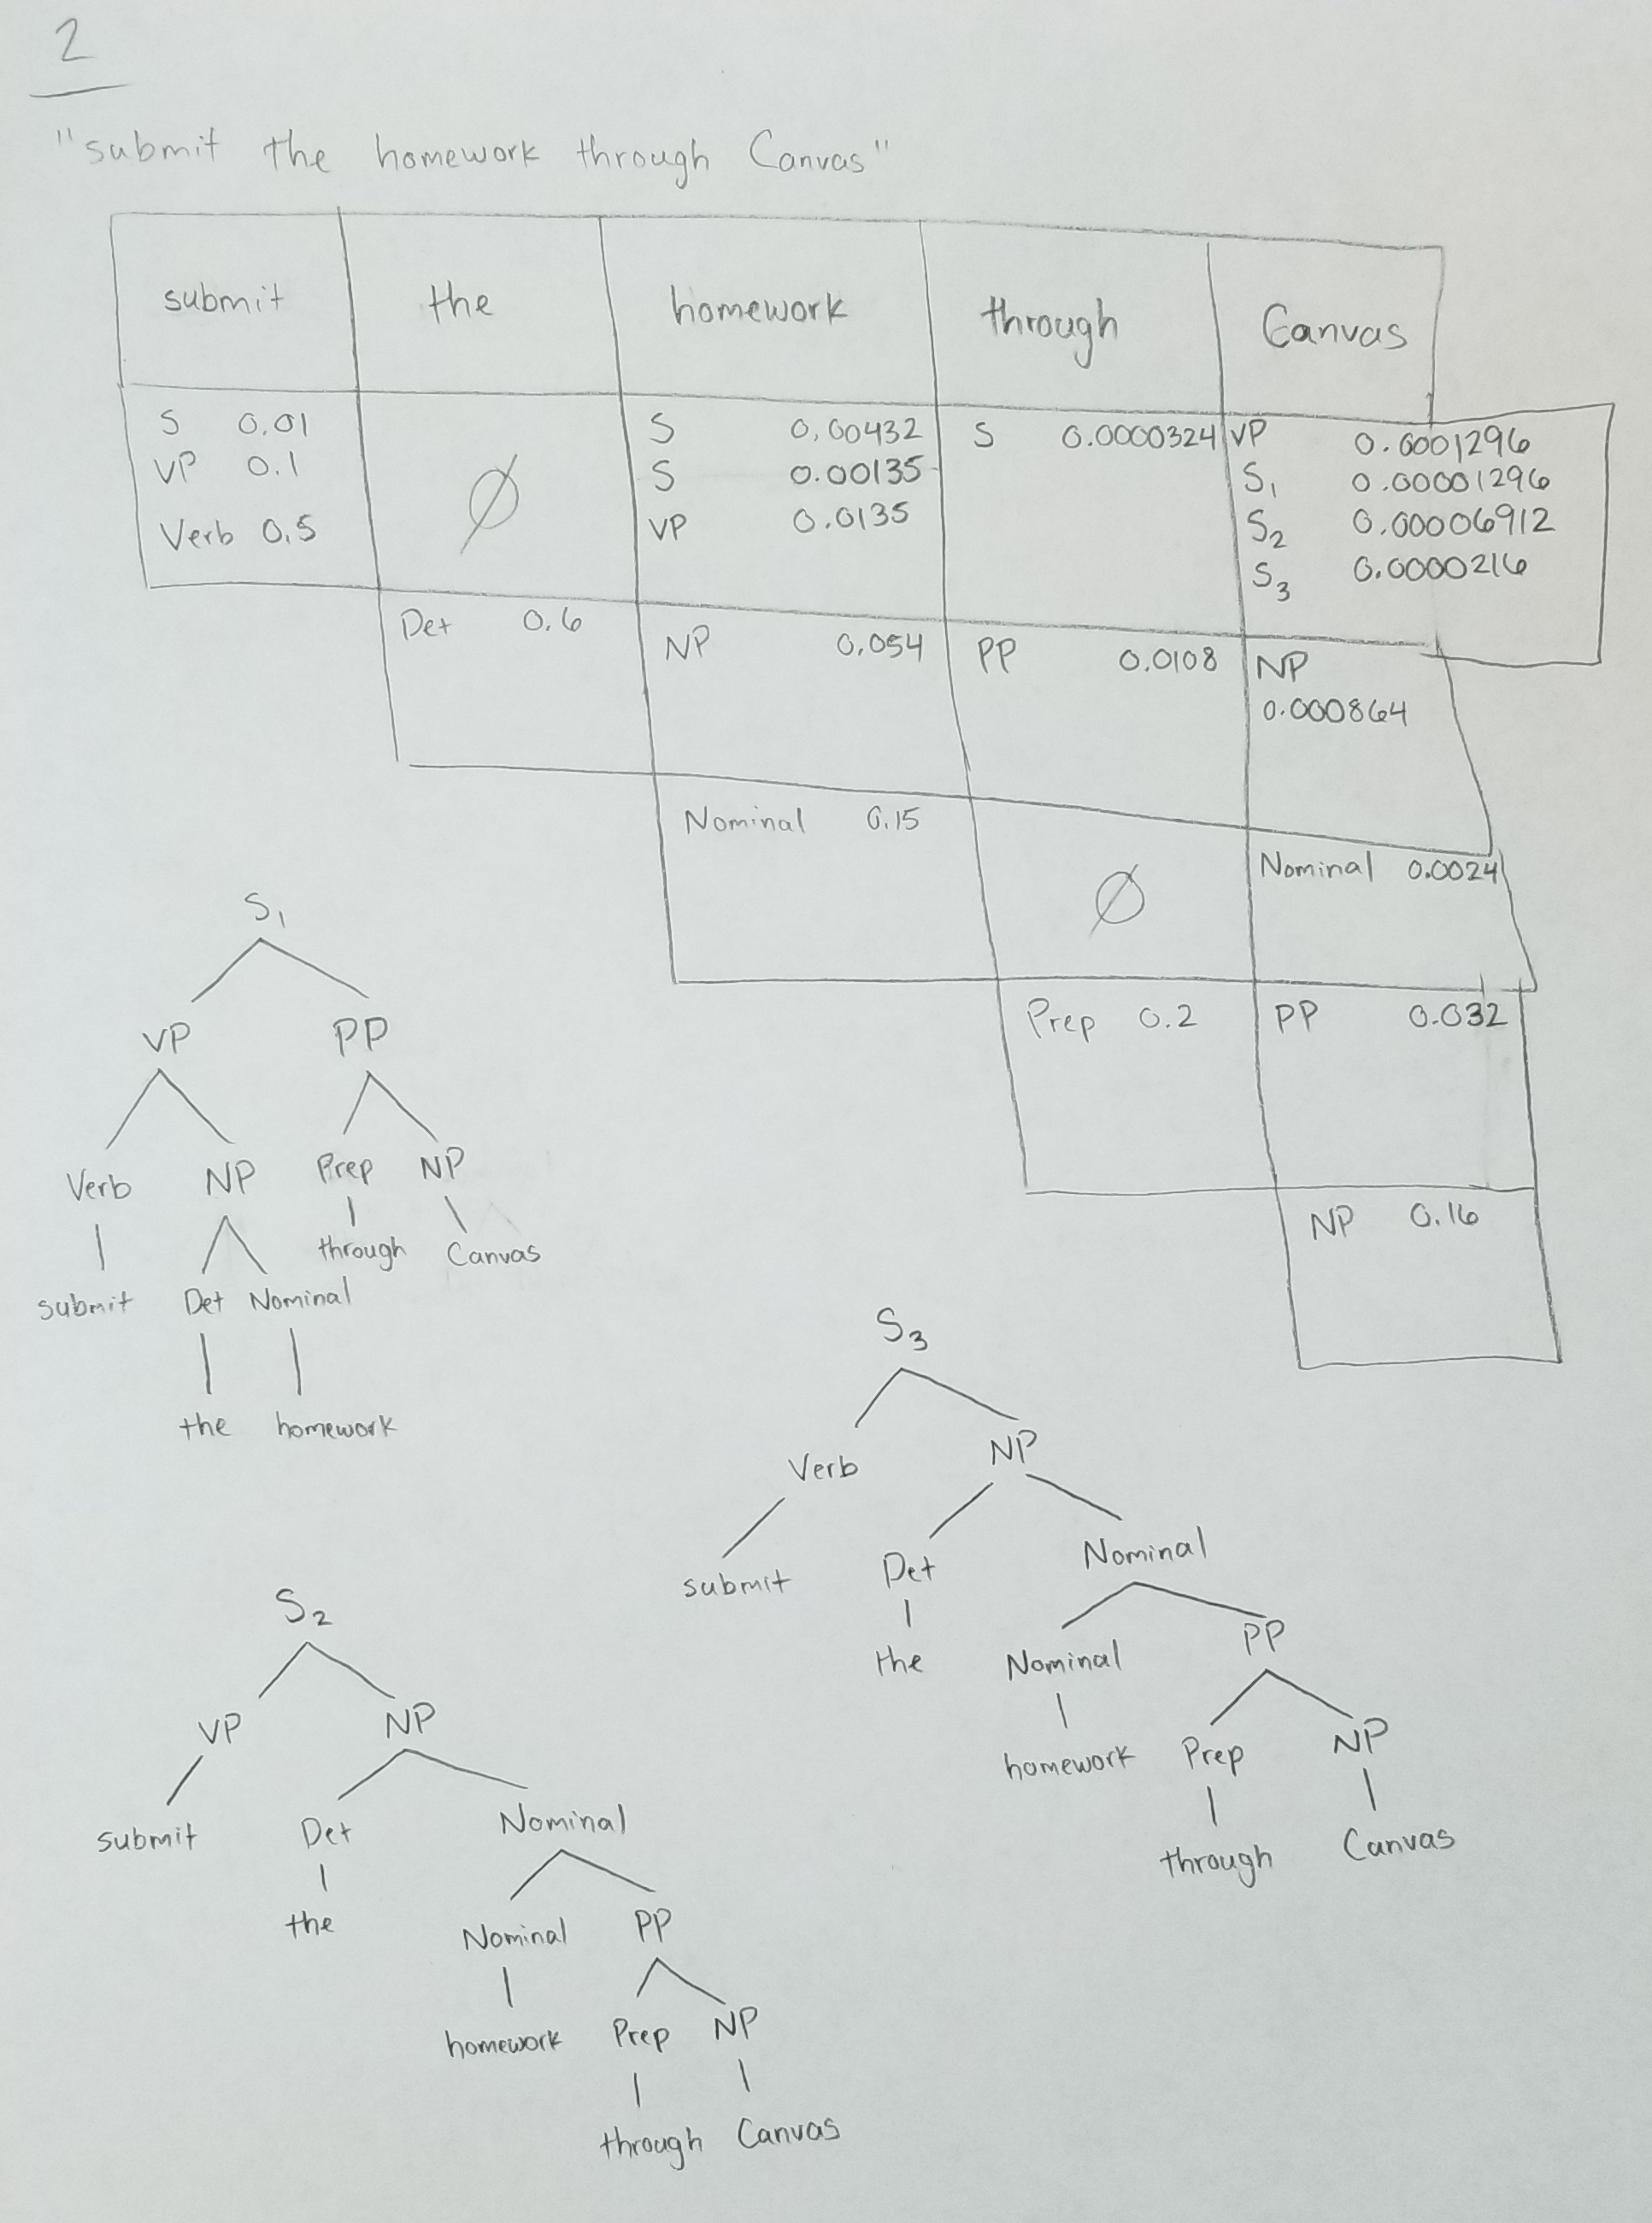 2
"submit the homework through Canvas"
submit the homework through Canvas
S 0.01
VP 0.1
Verb 0.5
Ø
S 0.00432
S 0.00135
VP 0.0135
S 0.0000324
VP 0.0001296
S1 0.00001296
S2 0.00006912
S3 0.0000216
Det 0.6
NP 0.054
PP 0.0108
NP
0.000864
Nominal 0.15
Ø
Nominal 0.0024
Prep 0.2
PP 0.032
NP 0.16
S1
VP PP
Verb NP Prep NP
submit Det Nominal through Canvas
the homework
S3
Verb NP
submit Det Nominal
the Nominal PP
homework Prep NP
through Canvas
S2
VP NP
submit Det Nominal
the Nominal PP
homework Prep NP
through Canvas